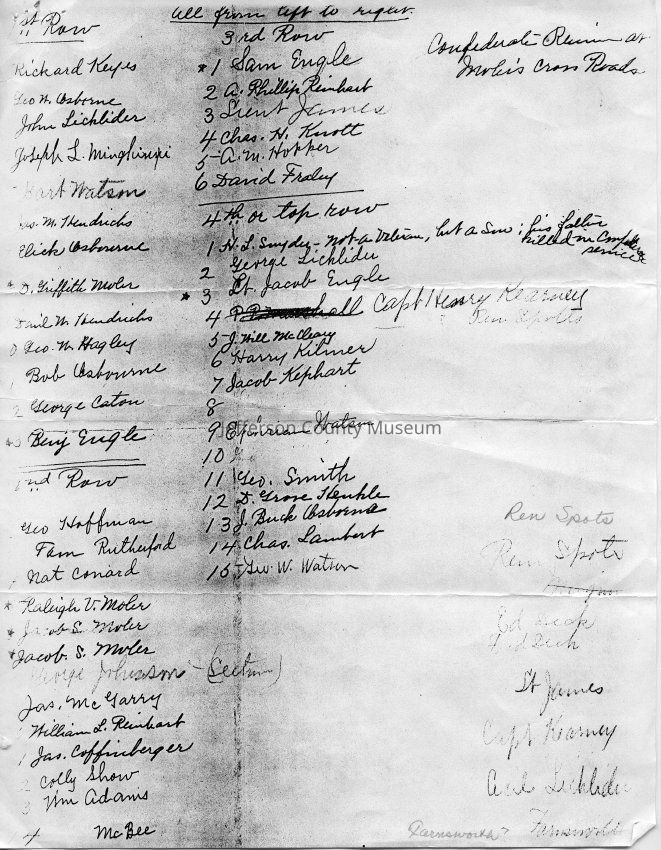 All from left to right.
1st Row
Richard Keyes
Geo W. Osborne
John Licklider
Joseph L. Minghinni
Bart Watson
Jas. M. Hendricks
Elick Osbourne
* D. Griffith Moler
Danl M. Hendricks
0 Geo. W. Hagley
1 Bob Osbourne
2 George Caton
*3 Benj Engle
2nd Row
Geo Hoffman
Fam Rutherford
Nat Conard
* Raleigh V. Moler
* Jacob S. Moler
* Jacob. S. Moler
George Johnson
Jas. McGarry
William L. Reinhart
1 Jas. Coffinberger
2 Colly Show
3 Wm Adams
4 McBee
3rd Row
*1 Sam Engle
2 A. Phillip Reinhart
3 Lieut James
4 Chas. H. Knott
5 A. M. Hopper
6 David Fraley
4th or top row
1 H. L. Snyder - not a Veteran, but a Son; his father killed in Confederate service
2 George Licklider
* 3 Lt. Jacob Engle
4 Capt Henry Kearney
Ren Spotts
5 J. Will McCleary
6 Harry Kilmer
7 Jacob Kephart
8
9 Watson
10
11 Geo. Smith
12 D. Grove Henkle
13 J. Buck Osborne
14 Chas. Lambert
15 Geo. W. Watson
Confederate Reunion at
Moler's Cross Roads
Jefferson County Museum
Ren Spots
Ren Spots
Lt James
Capt Kearney
Licklider
Farnsworth?
Farnsworth